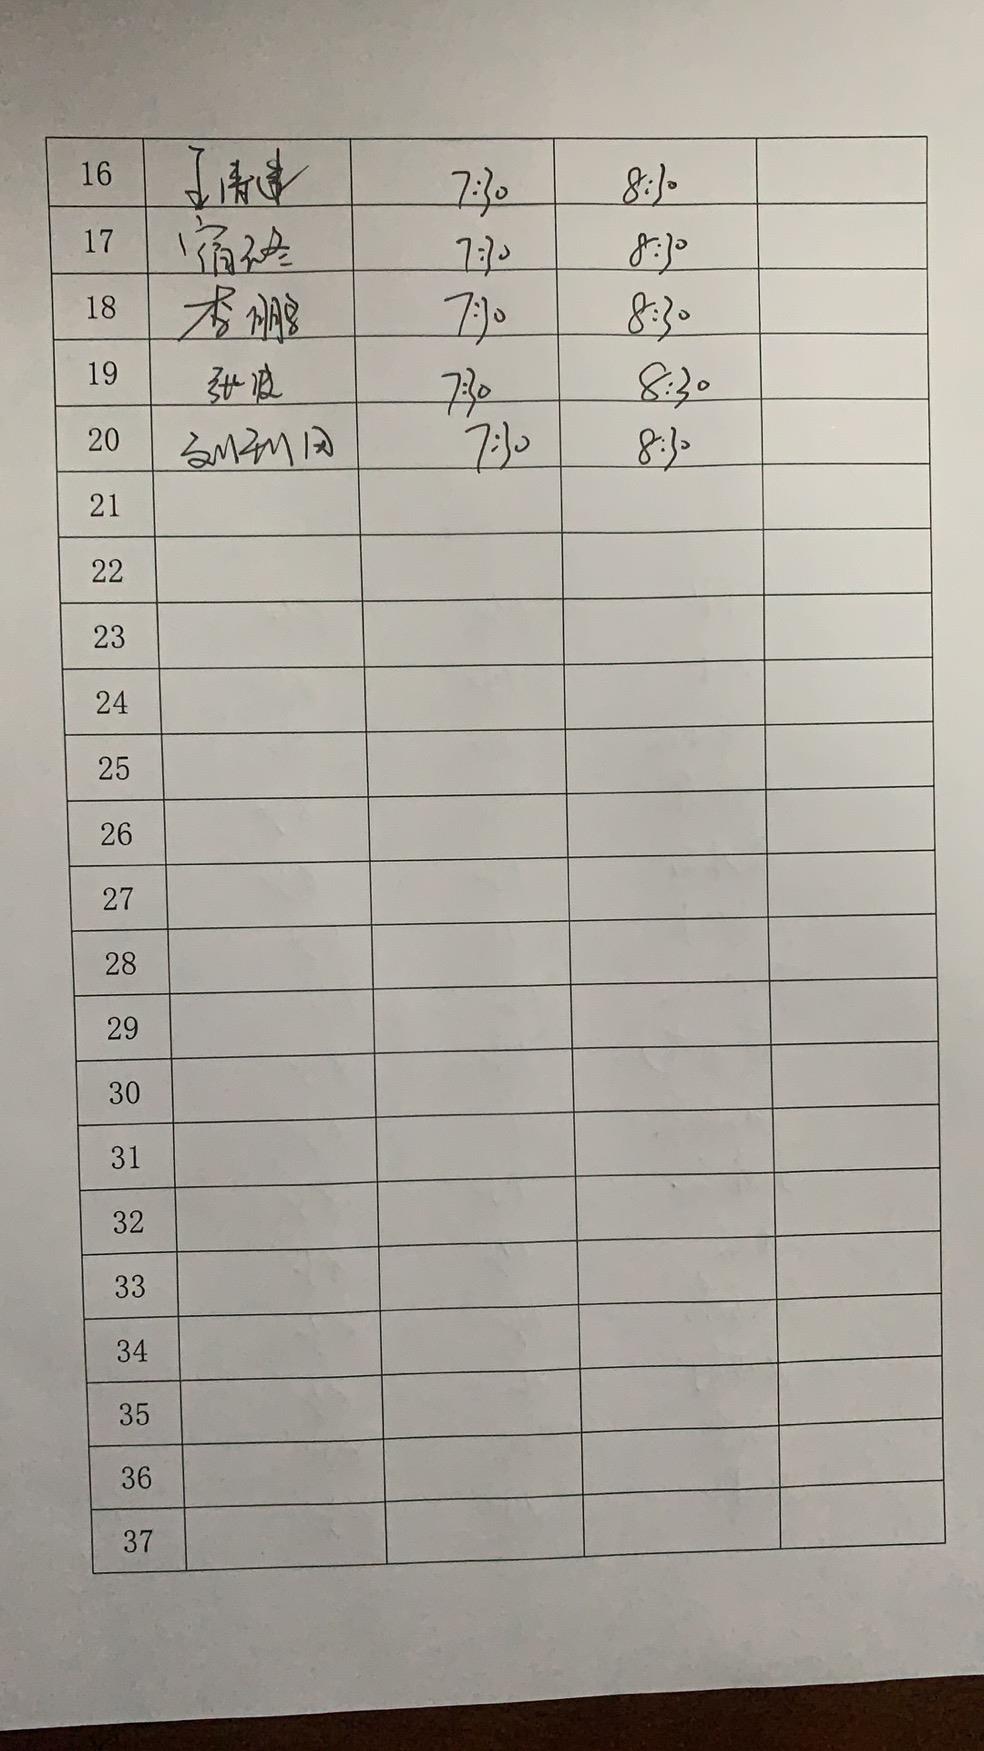 16 王清建 7:30 8:30
17 7:30 8:30
18 李鹏 7:30 8:30
19 张波 7:30 8:30
20 7:30 8:30
21
22
23
24
25
26
27
28
29
30
31
32
33
34
35
36
37